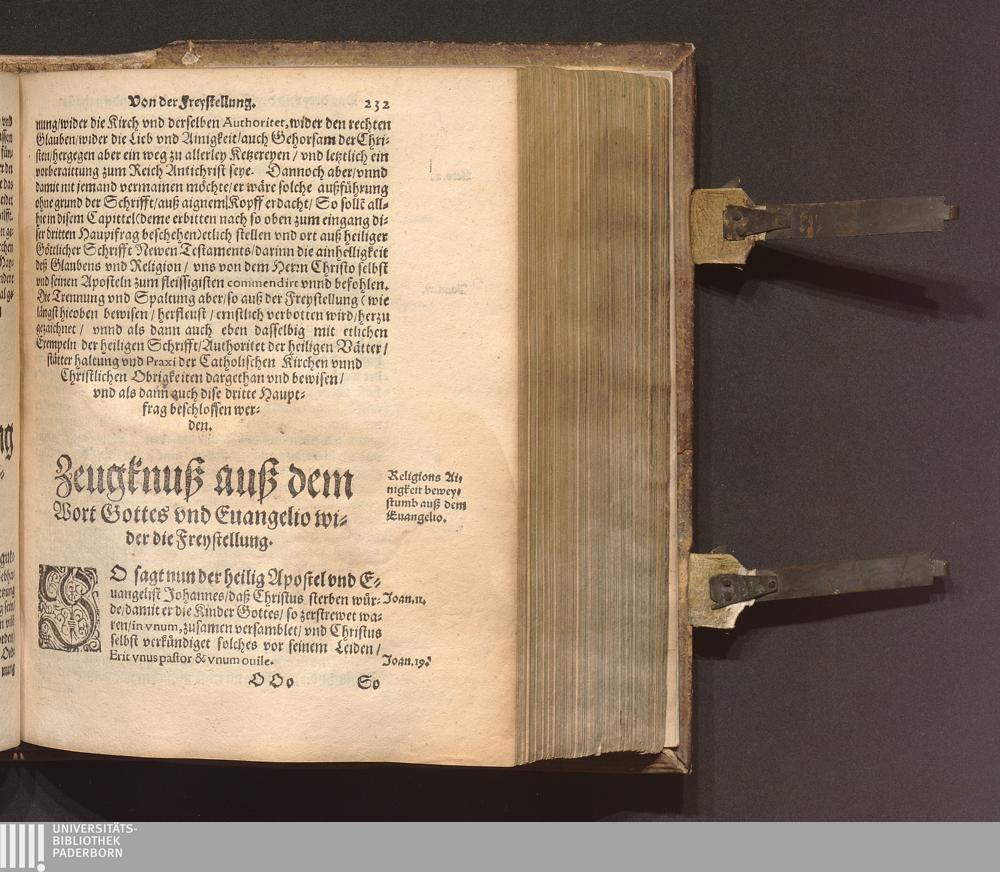 Von der Freystellung. 232
nung/wider die Kirch vnd derselben Authoritet, wider den rechten
Glauben/wider die Lieb vnd Ainigkeit/auch Gehorsam der Chri-
sten/hergegen aber ein weg zu allerley Ketzereyen / vnd letztlich ein
vorberaittung zum Reich Antichrist seye. Dannoch aber/vnnd
damit nit jemand vermainen möchte/er wäre solche außführung
ohne grund der Schrifft/auß aignem Kopff erdacht/ So solle all-
hie in disem Capittel (deme erbitten nach so oben zum eingang di-
ser dritten Hauptfrag beschehen) etlich stellen vnd ort auß heiliger
Göttlicher Schrifft Newen Testaments/darinn die ainhelligkeit
deß Glaubens vnd Religion / vns von dem Herrn Christo selbst
vnd seinen Aposteln zum fleissigisten commendirt vnnd befohlen.
Die Trennung vnd Spaltung aber/so auß der Freystellung (wie
längst hieoben bewisen / herfleust / ernstlich verbotten wird/herzu
gezaichnet / vnnd als dann auch eben dasselbig mit etlichen
Exempeln der heiligen Schrifft/Authoritet der heiligen Vätter/
stätter haltung vnd Praxi der Catholischen Kirchen vnnd
Christlichen Obrigkeiten dargethan vnd bewisen/
vnd als dann auch dise dritte Haupt-
frag beschlossen wer-
den.
Zeugknuß auß dem
Wort Gottes vnd Euangelio wi-
der die Freystellung.
Religions Ai-
nigkeit bewey-
stumb auß dem
Euangelio.
SO sagt nun der heilig Apostel vnd E-
uangelist Johannes/daß Christus sterben wür-
de/damit er die Kinder Gottes/ so zerstrewet wa-
ren/in vnum, zusamen versamblet/ vnd Christus
selbst verkündiget solches vor seinem Leiden/
Erit vnus pastor & vnum ouile.
Joan. 11.
Joan. 19.
O Oo So
UNIVERSITÄTS-
BIBLIOTHEK
PADERBORN